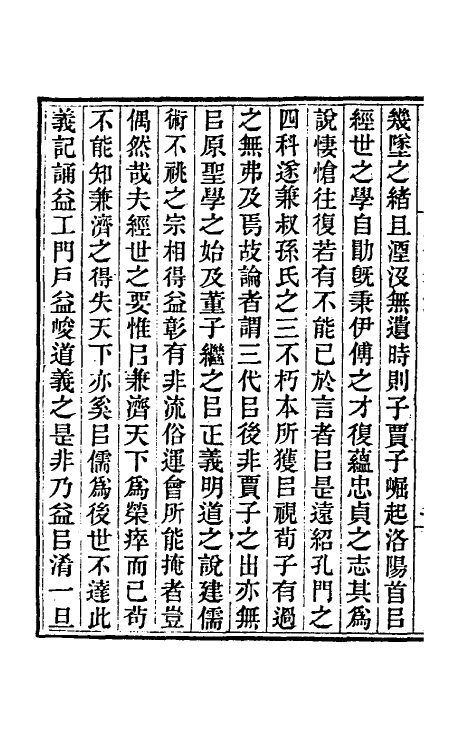 幾墜之緒且湮沒無遺時則子賈子崛起洛陽首㠯
經世之學自勖旣秉伊傅之才復蘊忠貞之志其爲
說悽愴往復若有不能已於言者㠯是遠紹孔門之
四科遂兼叔孫氏之三不朽本所獲㠯視荀子有過
之無弗及焉故論者謂三代㠯後非賈子之出亦無
㠯原聖學之始及董子繼之㠯正義明道之說建儒
術不祧之宗相得益彰有非流俗運會所能掩者豈
偶然哉夫經世之要惟㠯兼濟天下爲榮瘁而已苟
不能知兼濟之得失天下亦奚㠯儒爲後世不達此
義記誦益工門戶益峻道義之是非乃益㠯淆一旦